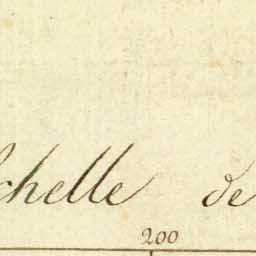 chelle de
200